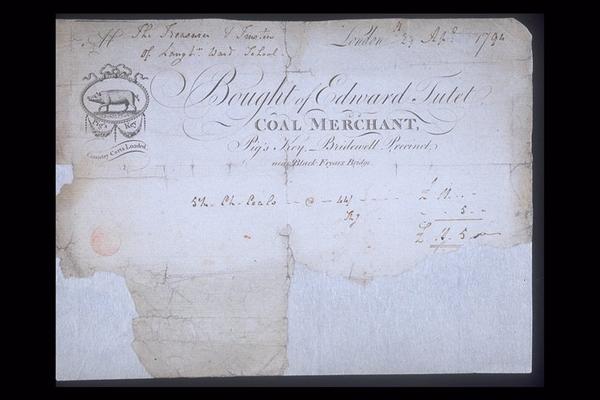 The Treasurer & Trustees
of Langbn Ward School.
London 29 Apl. 1794
Pig's Key
Country Carts Loaded
Bought of Edward Tutet
COAL MERCHANT,
Pig's Key, Bridewell Precinct,
near Black Fryars Bridge.
5 Ch. Coals @ 44/ £ 11
5
£ 11. 5